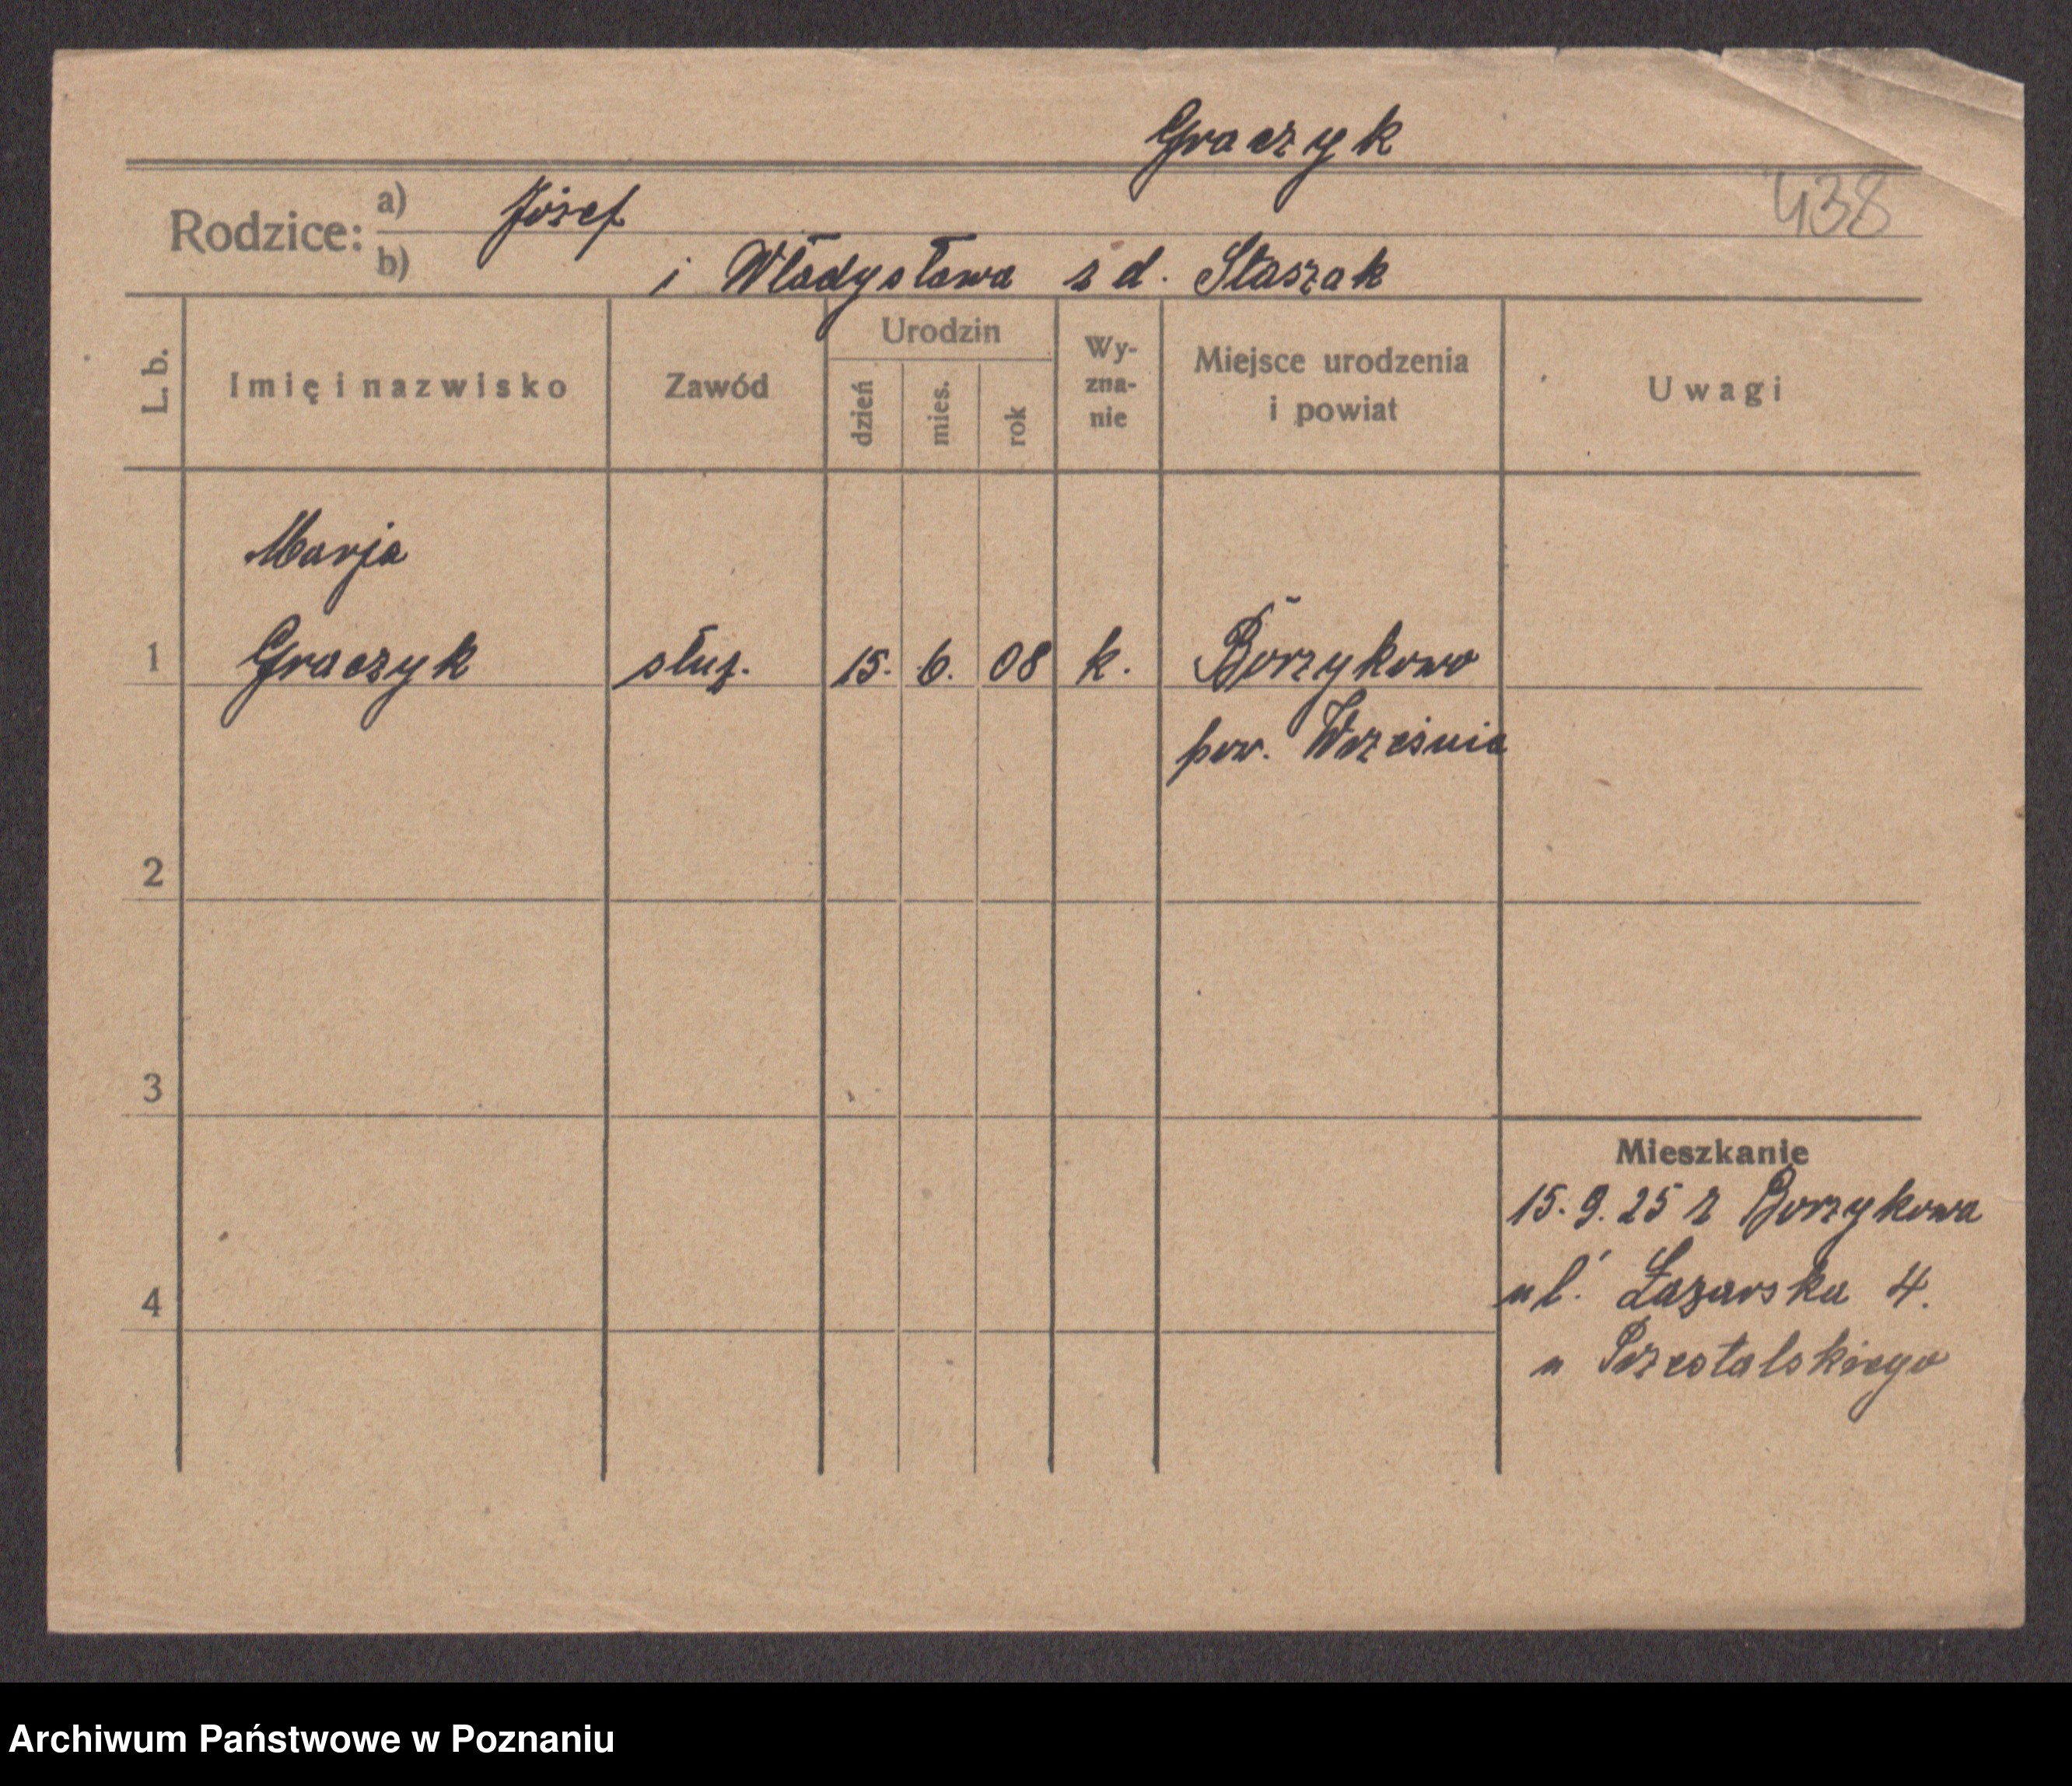 Graczyk
438
Rodzice:
a) Józef
b) i Władysława z d. Staszak
L. b.
Imię i nazwisko
Zawód
Urodzin
dzień
mies.
rok
Wy-
zna-
nie
Miejsce urodzenia
i powiat
Uwagi
Marja
1 Graczyk służ. 15. 6. 08 k. Borzykowo
pow. Września
2
3
4
Mieszkanie
15.9.25 z Borzykowa
ul. Łazarska 4.
u Przestalskiego
Archiwum Państwowe w Poznaniu